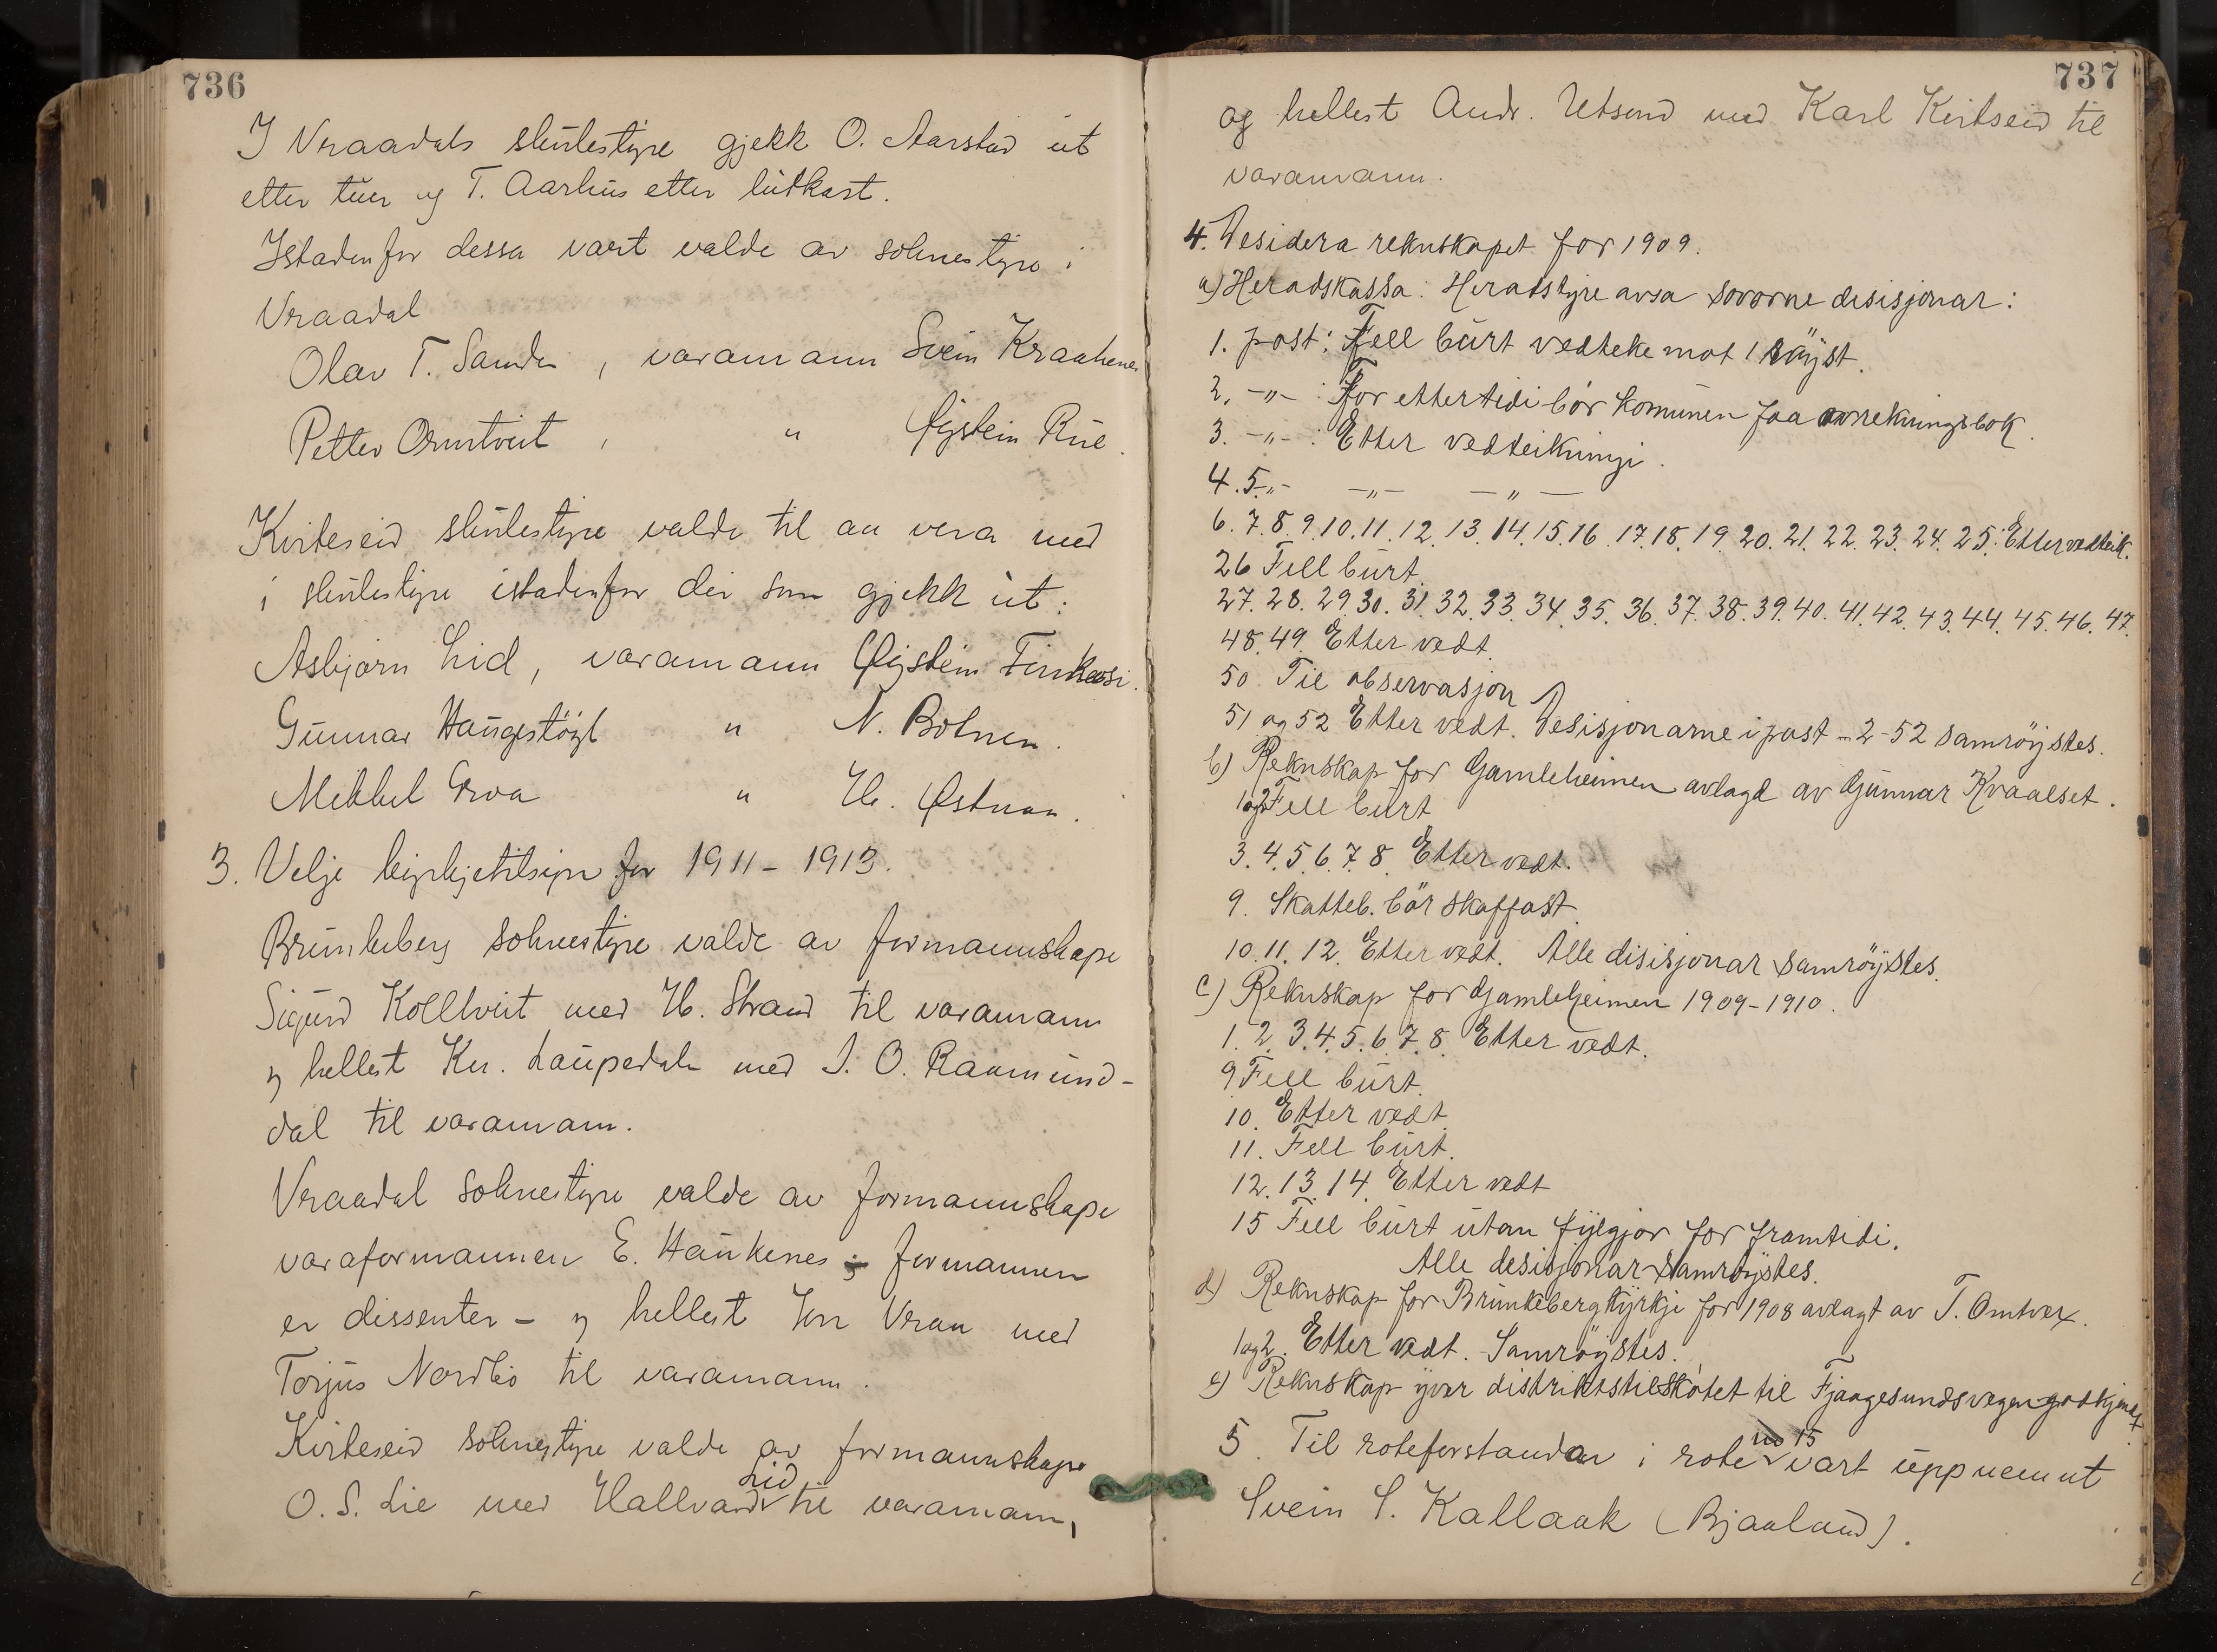 736
I Vraadals skulestyre gjekk O. Aarstad ut
etter tur og T. Aarhus etter lutkast.
Istadenfor dessa vart valde av soknestyre i
Vraadal
Olav T. Sanden, varamann Svein Kraakenes
Petter Omtveit, " Øystein Rue.
Kviteseid skulestyre valde til aa vera med
i skulestyre istadenfor dei som gjekk ut:
Asbjørn Lid, varamann Øystein
Gunnar Haugestøyl " N. Bolnen.
Mikkel Groa " H. Østnan.
3. Velje kyrkjetilsyn for 1911-1913.
Brunkeberg soknestyre valde av formannskape
Sigurd Kolltveit med H. Strand til varamann
og hellest Kn. Laupedal med J. O. Raamund-
dal til varamann.
Vraadal soknestyre valde av formannskape
varaformannen E. Haukenes formannen
er dissenter - og hellest Jon Vraa med
Torjus Nordbø til varamann.
Kviteseid soknestyre valde av formannskape
O. S. Lie med Hallvard Lid til varamann,
737
og hellest Andr. Utsund med Karl Kvitseid til
varamann.
4. Desidera reknskapet for 1909.
a) Heradskassa: Heradstyre avsa sovorne desisjonar:
1. post: Fell burt vedteke mot 1 røyst.
2. -"- : For ettertidi bør komunen faa avrekningsbok.
3. -"- : Etter vedteikningi.
4. 5 -"- -"- -"-
6. 7. 8. 9. 10. 11. 12. 13. 14. 15. 16. 17. 18. 19. 20. 21. 22. 23. 24. 25. Etter vedteik.
26 Fell burt.
27. 28. 29. 30. 31. 32. 33. 34. 35. 36. 37. 38. 39. 40. 41. 42. 43. 44. 45. 46. 47.
48. 49. Etter vedt.
50. Til observasjon
51 og 52 Etter vedt. Desisjonarne i post 2-52 samrøystes.
b) Reknskap for Gamleheimen avlagd av Gunnar Kvaalset.
1 og 2 Fell burt
3. 4. 5. 6. 7. 8. Etter vedt.
9. Skatteb. bör skaffast.
10. 11. 12. Etter vedt. Alle disisjonar samröystes.
c) Reknskap for Gamleheimen 1909-1910.
1. 2. 3. 4. 5. 6. 7. 8. Etter vedt.
9 Fell burt.
10. Etter vedt.
11. Fell burt.
12. 13. 14. Etter vedt
15 Fell burt utan fylgjor for framtidi.
Alle desisjonar samröystes.
d) Reknskap for Brunkeberg kyrkje for 1908 avlagt av T. Omtvet.
1 og 2. Etter vedt. Samröystes.
e) Reknskap yver distriktstilskotet til Fjaagesundsvegen godkjendt.
5. Til roteforstandar i rote no 15 vart uppnemnt
Svein S. Kallaak (Bjaaland).